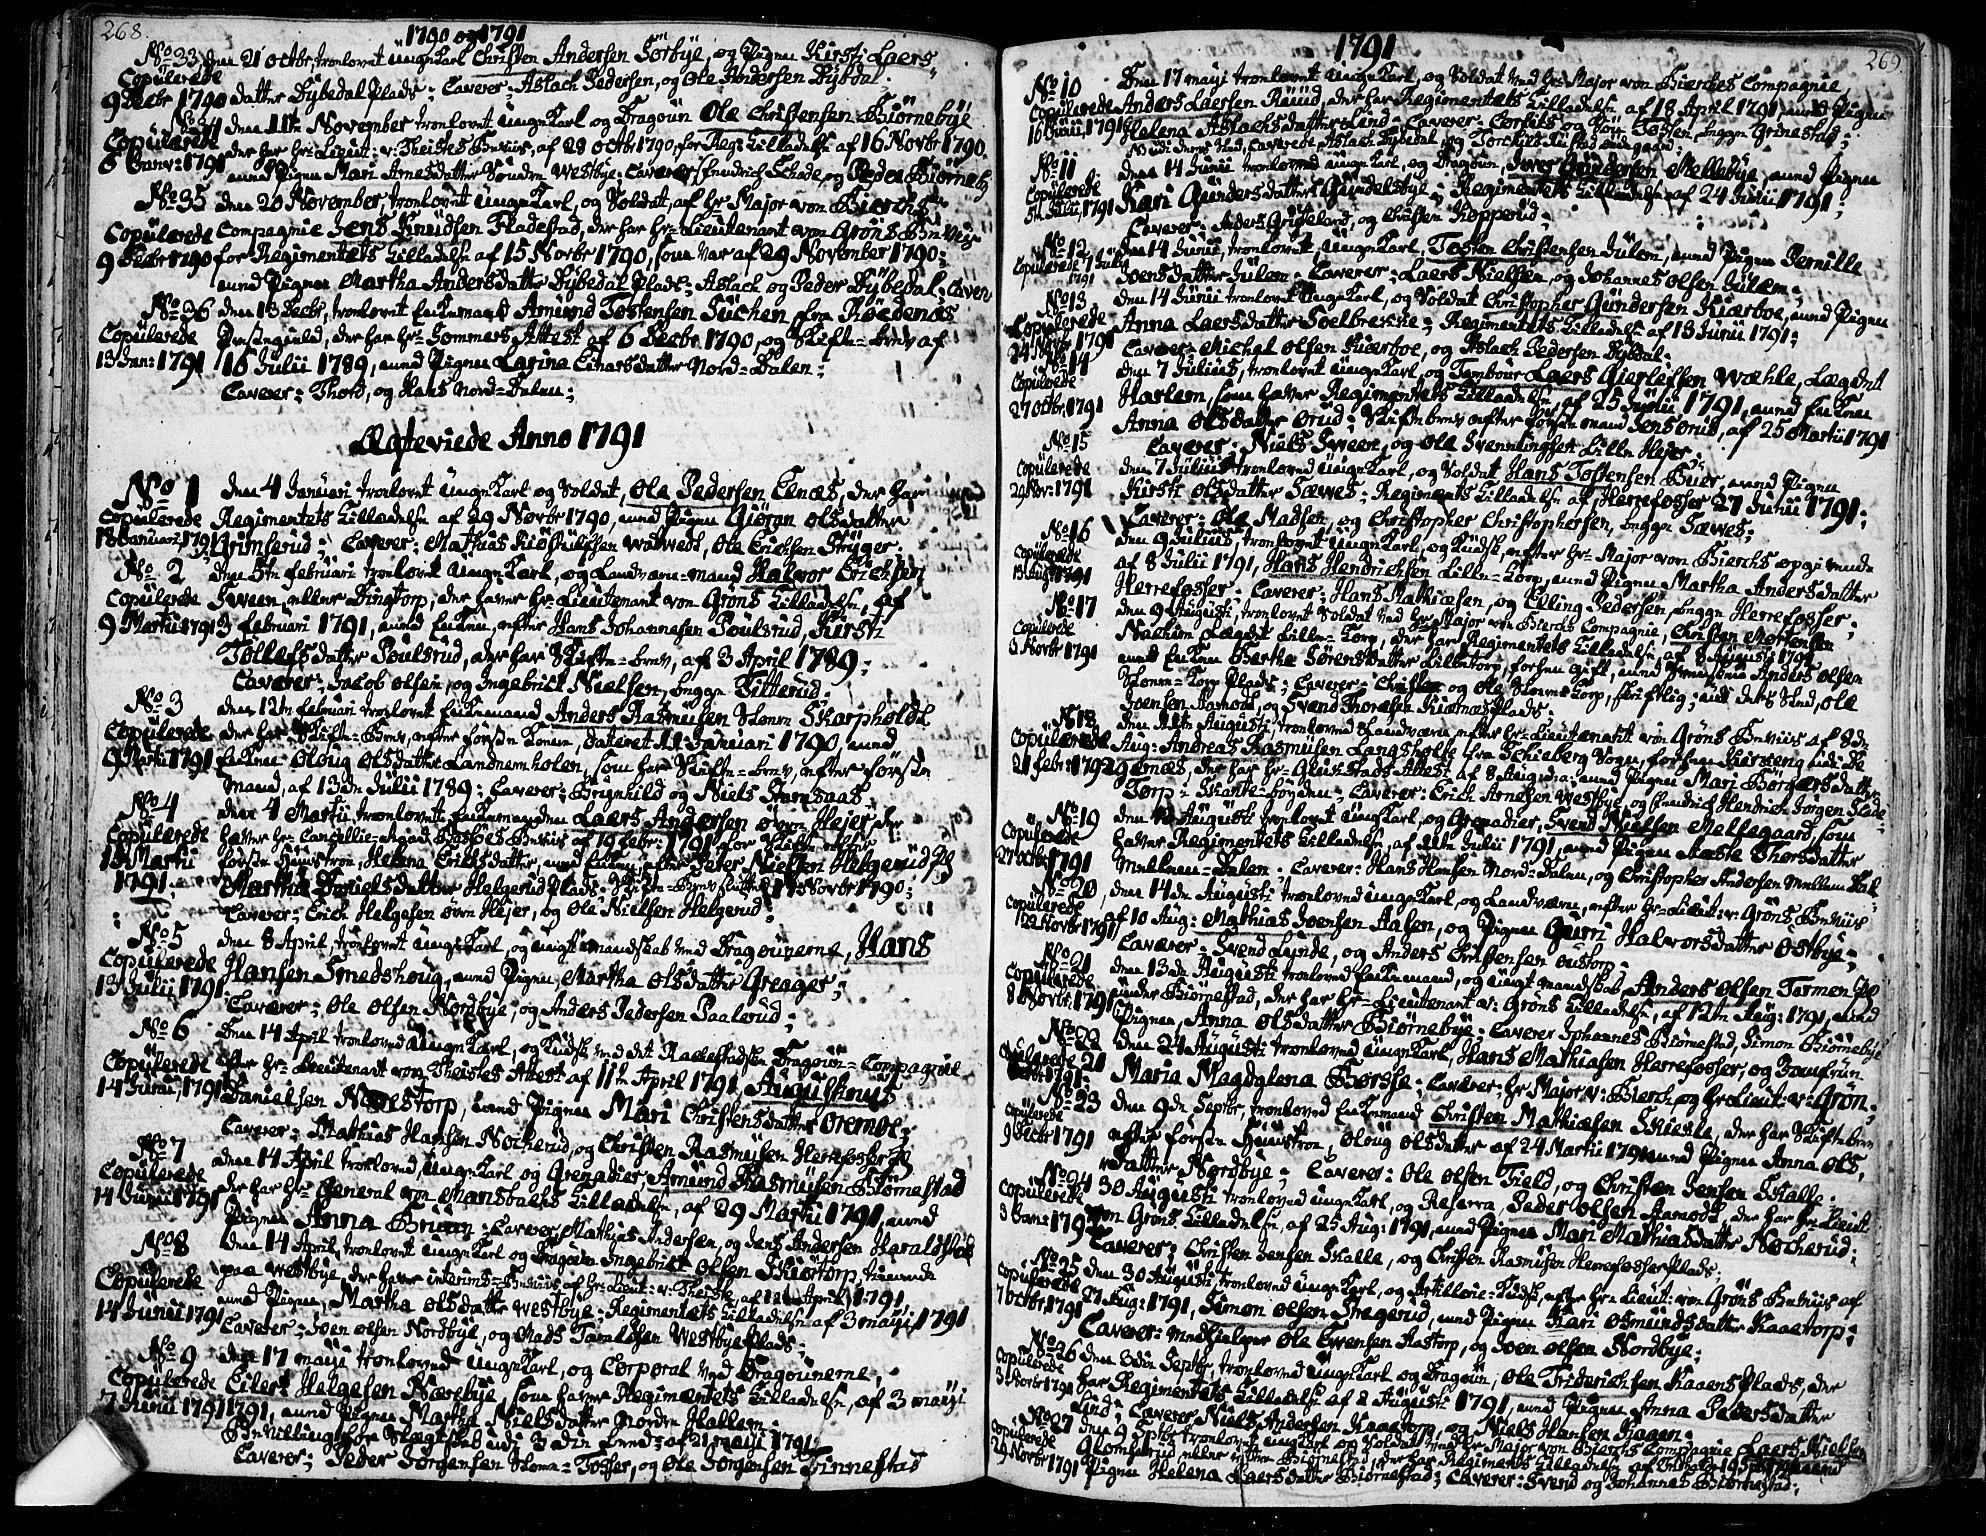 268.
1790 og 1791
No 33 den 21 octbr, trolovet ungKarl Christen Andersen Sörbÿe, og Pigen Kirsti Laers
Copulerede
9 Decbr 1790 datter Dÿbedal Plads; Caverer: Aslach Pedersen, og Ole Andersen Dÿbdal.
No 34 den 11te November trolovet ungKarl og Dragoun Ole Christensen Biörnebÿe
Copulerede
der har Hr Lieut: v: Theistes Beviis, af 28 octbr 1790, for Reg: Tilladelse af 16 Novbr 1790.
5 Janv: 1791 med Pigen Mari Arnesdatter Söndre Westbye: Caverer, Friderich Schade, og Peder Biörnebÿ
No 35 den 20 November, trolovet ungKarl, og Soldat, af Hr Major von Bierchs
Copulerede Compagnie Jens Knudsen Fladestad, der har Hr Lieutenant von Gröns Beviis
9 Decbr 1790 for Regimentets Tilladelse af 15 Novbr 1790, som var af 29 November 1790;
med Pigen Martha Andersdatter Dÿbedal Plads; Aslach og Peder Dÿbedal, Caver:
No 36 den 13 Decbr, trolovet Enkemand Amund Tostensen Suchen fra Röedenæs
Copulerede Præstegield, der har Hr Sommers Attest af 6 Decbr 1790, og Skifte-brev af
13 Jan: 1791 16 Julii 1789, med Pigen Larina Einarsdatter Nord-Dalen;
Caverer; Thord, og Hans Nord-Dalen;
Ægteviede Anno 1791
No 1 den 4 Januari trolovet ungKarl og Soldat, Ole Pedersen Eenæs, der har
Copulerede Regimentets Tilladelse af 29 Novbr 1790, med Pigen Giöran Olsdatter
18 Januari, 1791 Grimserud; Caverer: Mathias Watvedt, Ole Erichsen Strÿger.
No 2 den 5te Februari trolovet ungKarl, og Landværn-mand Halvor Erichsen
Copulerede Sween, eller Tingtorp, der haver Hr Lieutenant von Gröns Tilladelse, af
9 Martii 1791 3 Februari 1791, med Enken, efter Hans Johannesen Poulsrud, Kirsti
Tollefsdatter Poulsrud, der har Skifte-brev, af 3 April 1789;
Caverer: Jacob Olsen, og Ingebrict Nielsen, begge Titterud.
No 3 den 12te Februari trolovet Enkemand Anders Rasmusen Skarpholdt
Copulerede der har Skifte-Brev, efter forste Konen, dateret 11 Januari 1790, med
9 Martii 1791 Enken Oloug Olsdatter Landnemholen, som har Skifte-brev, efter förste
Mand, af 13de Julii 1789; Caverer: Brynhild og Niels
No 4 den 4 Martii trolovet Enkemanden Laers Andersen övre Hejer der
Copulerede haver Hr Cancellie-Raad Beviis af 19 Febr: 1791 for Skifte efter
18 Martii forste Hustroe, Helena Erichsdatter, med Enken efter Peder Nielsen Helgerud Pl
1791. Martha Danielsdatter Helgerud Plads: Skifte-Brev sluttet 17 Novbr 1790;
Caverer; Erich Helgesen övre Hejer, og Ole Nielsen Helgerud.
No 5 den 8 April, trolovet ungKarl, og ungt mandskab ved Dragounerne, Hans
Copulerede Hansen Smedshoug, med Pigen, Martha Olsdatter Greager;
13 Julii 1791 Caverer; Ole Olsen Nordbÿe, og Anders Pedersen Paalerud;
No 6 den 14 April trolovet ungKarl, og Kudsk ved det Rackestadske Dragoun-Compagnie
Copulerede efter Hr Lieutenant von Theistes Attest af 11te April 1791, Augustinus
14 Junii, 1791 Danielsen Norestorp, med Pigen Mari Christensdatter Oremoe;
Caverer: Mathias Hansen Nocherud, og Christen Rasmusen Herrefosser Pl
No 7 den 14 April trolovet, ungKarl og Grenadier, Amund Rasmusen Biörnestad
Copulerede der har Hr General von Mansbachs Tilladelse, af 29 Martii 1791, med
14 Junii 1791 Pigen Anna Bruun; Caverer, Mathias Andersen, og Jens Andersen Haraldstad
No 8 den 14 April, trolovet ungKarl og Dragoun Ingebrict Olsen Skiörtorp, tienende
Copulerede paa Westbye, der haver interims-Beviis af Hr Lieut: v: Theiste af 12te April 1791
14 Junii 1791 med Pigen, Martha Olsdatter Westbye; Regimentets Tilladelse af 3 maÿi 1791
Caverer; Joen Olsen Nordbÿe, og Mads Westbye Plads;
No 9 den 17 maÿi trolovet ungKarl, og Corporal ved Dragounerne,
Copulerede Eilert Helgesen Nærebye, som haver Regimentets Tilladelse, af 3 maÿi
7 Junii 1791 1791, med Pigen Martha Nielsdatter Nordre Hallem;
Bevilling for Slægtskab udi 3 die Leed: af 21 maÿi 1791;
Caverer; Peder Jörgensen Fosser, og Ole Jörgensen Finnestad
269.
1791
No 10 Den 17 maÿi trolovet ungKarl, og Soldat ved Hr Major von Bierches Compagnie,
Copulerede Anders Laersen Ruud, der har Regimentets Tilladelse af 18 April 1791, med Pigen
16 Junii 1791 Helena Aslachsdatter Lind. Caverer: og Tossen, begge Grinestad;
udi deres Sted, Caverede Aslach Dybedal, og Torchild
No 11 den 14 Junii trolovet ungKarl, og Dragoun, Iwer Gundersen Mellebye, med Pigen
Copulerede
5te Julii, 1791 Kari Gundersdatter Gundelsbye; Regimentets Tilladelse af 24 Junii 1791;
Caverer: Anders Griseland, og Christen Kopperud.
No 12 den 14 Junii, trolovet, ungKarl, Tosten Christensen Julem, med Pigen Pernille
Copulerede 14 Julii
1791 Joensdatter Julem. Caverer: Laers Nielsen, og Johannes Olsen Julem;
No 13 den 14 Junii trolovet ungKarl, og Soldat Christopher Gundersen Kiærboe, med Pigen
Copulerede Anna Laersdatter Soelbrecke; Regimentets Tilladelse af 13 Junii 1791;
24 Novbr 1791 Caverer: Michel Olsen Kiærboe, og Aslach Pedersen Dÿbdal.
No 14 den 7 Julius, trolovet ungKarl, og Tambour Laers Gierlofsen Wæhle, Lægdet
Copulerede Harlem, som haver Regimentets Tilladelse af 25 Junii 1791, med Enken
27 Octbr, 1791 Anna Olsdatter Orud; Skifte-brev efter forste mand Jens Orud, af 25 Martii 1791
No 15 Caverer: Niels Sween, og Ole Svenningsen Lille Hejer.
Copulerede den 7 Julius trolovet ungKarl, og Soldat Hans Tostensen Buer, med Pigen
29 Nov: 1791 Kirsti Olsdatter Sæwes; Regimentets Tilladelse af Herrefosser 27 Junii 1791;
Caverer: Ole Madsen, og Christopher Christophersen, begge Sæwes;
No 16 den 9 Julius, trolovet ungKarl, og Kudsk, efter Hr Major von Bierchs opgivende
Copulerede af 8 Julii 1791, Hans Hendrichsen Lille-Torp, med Pigen Martha Andersdatter
13 Aug: 1791 Herrefosser. Caverer: Hans Mathiesen, og Elling Pedersen, begge Herrefosser;
No 17 den 9 Augusti, trolovet Soldat ved Hr Major von Bierchs Compagnie, Christen Mortensen
Copulerede Nachim Lægdet Lille-Torp, der har Regimentets Tilladelse, af 8 Augusti 1791
3 Novbr 1791 med Enken Berthe Sörensdatter Lilletorp, forhen gift, med Anders Olsen
Torp Plads; Caverer: Christen og Ole Torp, skriftlig; udi deres Sted, Ole
Joensen Aamodt, og Svend Thoresen Plads.
No 18 den 11te Augusti, trolovet Landværn, efter Hr Lieutenant von Gröns Beviis af 8de
Copulerede Aug: Andreas Rasmusen Langsholte fra Schieberg Sogn, forhen
21 Febr: 1792 Eenæs, der har Hr Gluckstads Attest af 8 August: med Pigen Mari Börgersdatter
Torp-Skante-bogden; Caverer: Erich Arnesen Westbye, og Friderich Hendrich Jörgen Skade.
No 19 den 12 Augusti trolovet ungKarl, og Grenadier, Svend Nielsen Mellegaard, som
Copulerede haver Regimentets Tilladelse, af 11te Julii 1791, med Pigen Aaste Thorsdatter
27 octbr 1791 Mellem-Dalen. Caverer: Hans Hansen Nord-Dalen, og Christopher Andersen Mellem Dal.
No 20 den 14de Augusti trolovet ungKarl, og Landværn, efter Hr Lieut: v: Gröns Beviis
Copulerede af 10 Aug: Mathias Joensen Aasen, og Pigen Gurri Halvorsdatter Östbye;
22 Novbr 1791 Caverer: Svend Lunde, og Anders Christensen Oustorp.
No 21 den 13de Augusti trolovet Enkemand, og ungt mandskab Anders Olsen Tormen Pl
Copulerede under Biörnestad, der har Hr Lieutenant v: Gröns Tilladelse, af 12te Aug: 1791, med
8 Novbr: 1791 Pigen, Anna Olsdatter Biörnebye. Caverer Johannes Biörnestad, Simon Biörnebye
No 22 den 24 Augusti trolovet ungKarl, Hans Mathiasen Herrefosser, og Jomfrun
Copulerede 21
1791: Maria Magdalena Börsse: Caverer, Hr Major v: Bierch, og Hr Lieut: v: Grön;
No 23 den 9de Septbr, trolovet Enkemand Christen Mathiasen Skiecle, der har Skiftebrev
Copulerede efter forste Hustroe, Oloug Olsdatter af 24 Martii 1791 med Pigen Anna Ols,
9 Decbr 1791 datter Nordbye; Caverer: Ole Olsen Field, og Christen Jensen Skalle.
No 24 30 Augusti trolovet ungKarl, og Reserva, Peder Olsen Aamodt, der har Hr Lieut.
Copulerede von Gröns Tilladelse, af 25 Aug: 1791, med Pigen Mari Mathiasdatter Nocherud:
3 Jan: 1792 Caverer: Christen Jensen Skalle, og Christen Rasmusen Herrefosser Plads;
No 25 den 30 Augusti, trolovet ungKarl, og Artillerie-Kudsk, efter Hr Lieut: von Gröns Beviis af
Copulerede 27 Aug: 1791, Simon Olsen Sregerud, med Pigen Kari Osmundsdatter Kaaetorp;
7 Octbr 1791 Caverer: Medhielper Ole Evensen Aastorp, og Joen Olsen Nordbye;
No 26 den 3die Septbr, trolovet ungKarl og Dragoun, Ole Friderichsen Kaaens Plads, der
Copulerede har Regimentets Tilladelse af 2 Augusti 1791, med Pigen Anna Pedersdatter
3 Novbr 1791 Lind; Caverer Niels Andersen Kaaetorp, og Niels Hansen Kaaen.
No 27 den 9 Septbr trolovet ungKarl og Soldat ved Hr Major von Bierchs Compagnie Laers Nielsen
Copulerede Glomsrud eller Biörnestad, der har Regimentets Tilladelse af med
29 Novbr 1791 Pigen Helena Laersdatter Biörnestad; Caverer: Svend og Johannes Biörnestad;